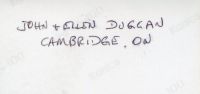 JOHN + ELLEN DUGGAN
CAMBRIDGE, ON